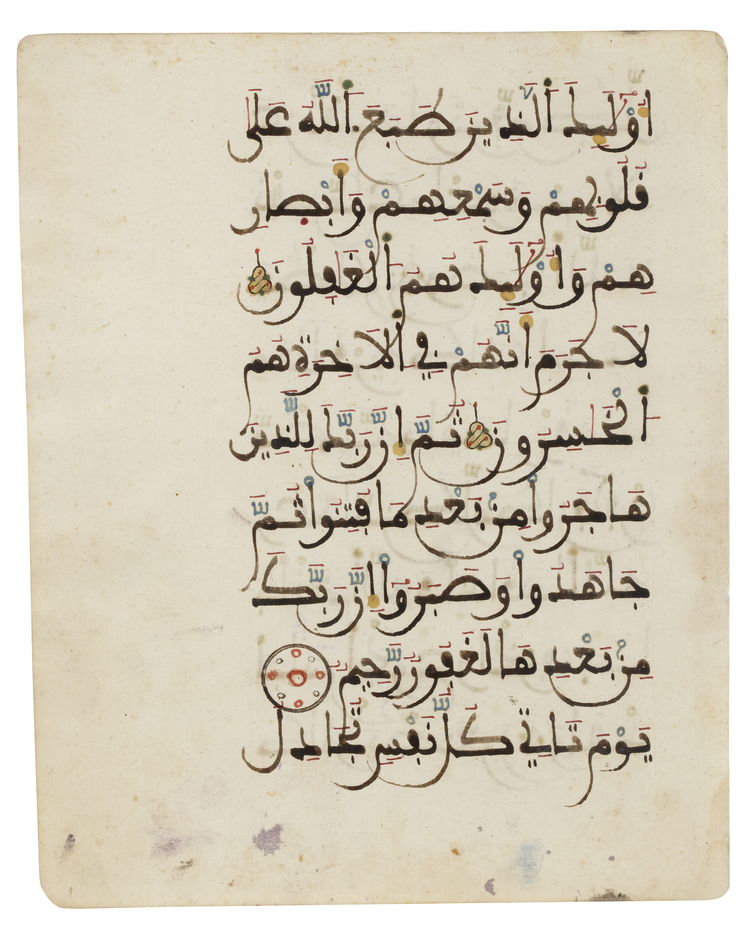 اُوْلَٰٓئِكَ اَ۬لذِينَ طَبَعَ اَ۬للَّهُ عَلَىٰ
قُلُوبِهِمْ وَسَمْعِهِمْ وَأَبْصٰ۪رِ
هِمْ وَأُوْلَٰٓئِكَ هُمُ اُ۬لْغَٰفِلُونَ
لَا جَرَمَ أَنَّهُمْ فِے اِ۬لَاخِرَةِ هُمُ
اُ۬لْخَٰسِرُونَ ثُمَّ إِنَّ رَبَّكَ لِلذِينَ
هَاجَرُواْ مِنۢ بَعْدِ مَا فُتِنُواْ ثُمَّ
جَٰهَدُواْ وَصَبَرُوٓاْ إِنَّ رَبَّكَ
مِنۢ بَعْدِهَا لَغَفُورٞ رَّحِيمٞ
يَوْمَ تَاتِے كُلُّ نَفْسٖ تُجَٰدِلُ